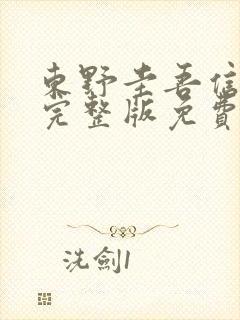 東野圭吾信
完整版免費
洗劍1